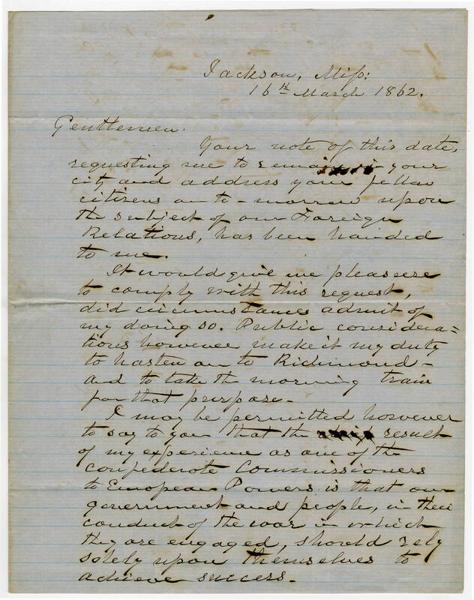 Jackson, Miss:
16th March 1862.
Gentlemen.
Your note of this date,
requesting me to remain in your
city and address your fellow
citizens on to-morrow upon
the subject of our Foreign
Relations, has been handed
to me.
It would give me pleasure
to comply with this request,
did circumstances admit of
my doing so. Public considera-
tions however make it my duty
to hasten on to Richmond -
and to take the morning train
for that purpose.
I may be permitted however
to say to you that the result
of my experience as one of the
Confederate Commissioners
to European Powers is that our
government and people, in their
conduct of the war in which
they are engaged, should rely
solely upon themselves to
achieve success.